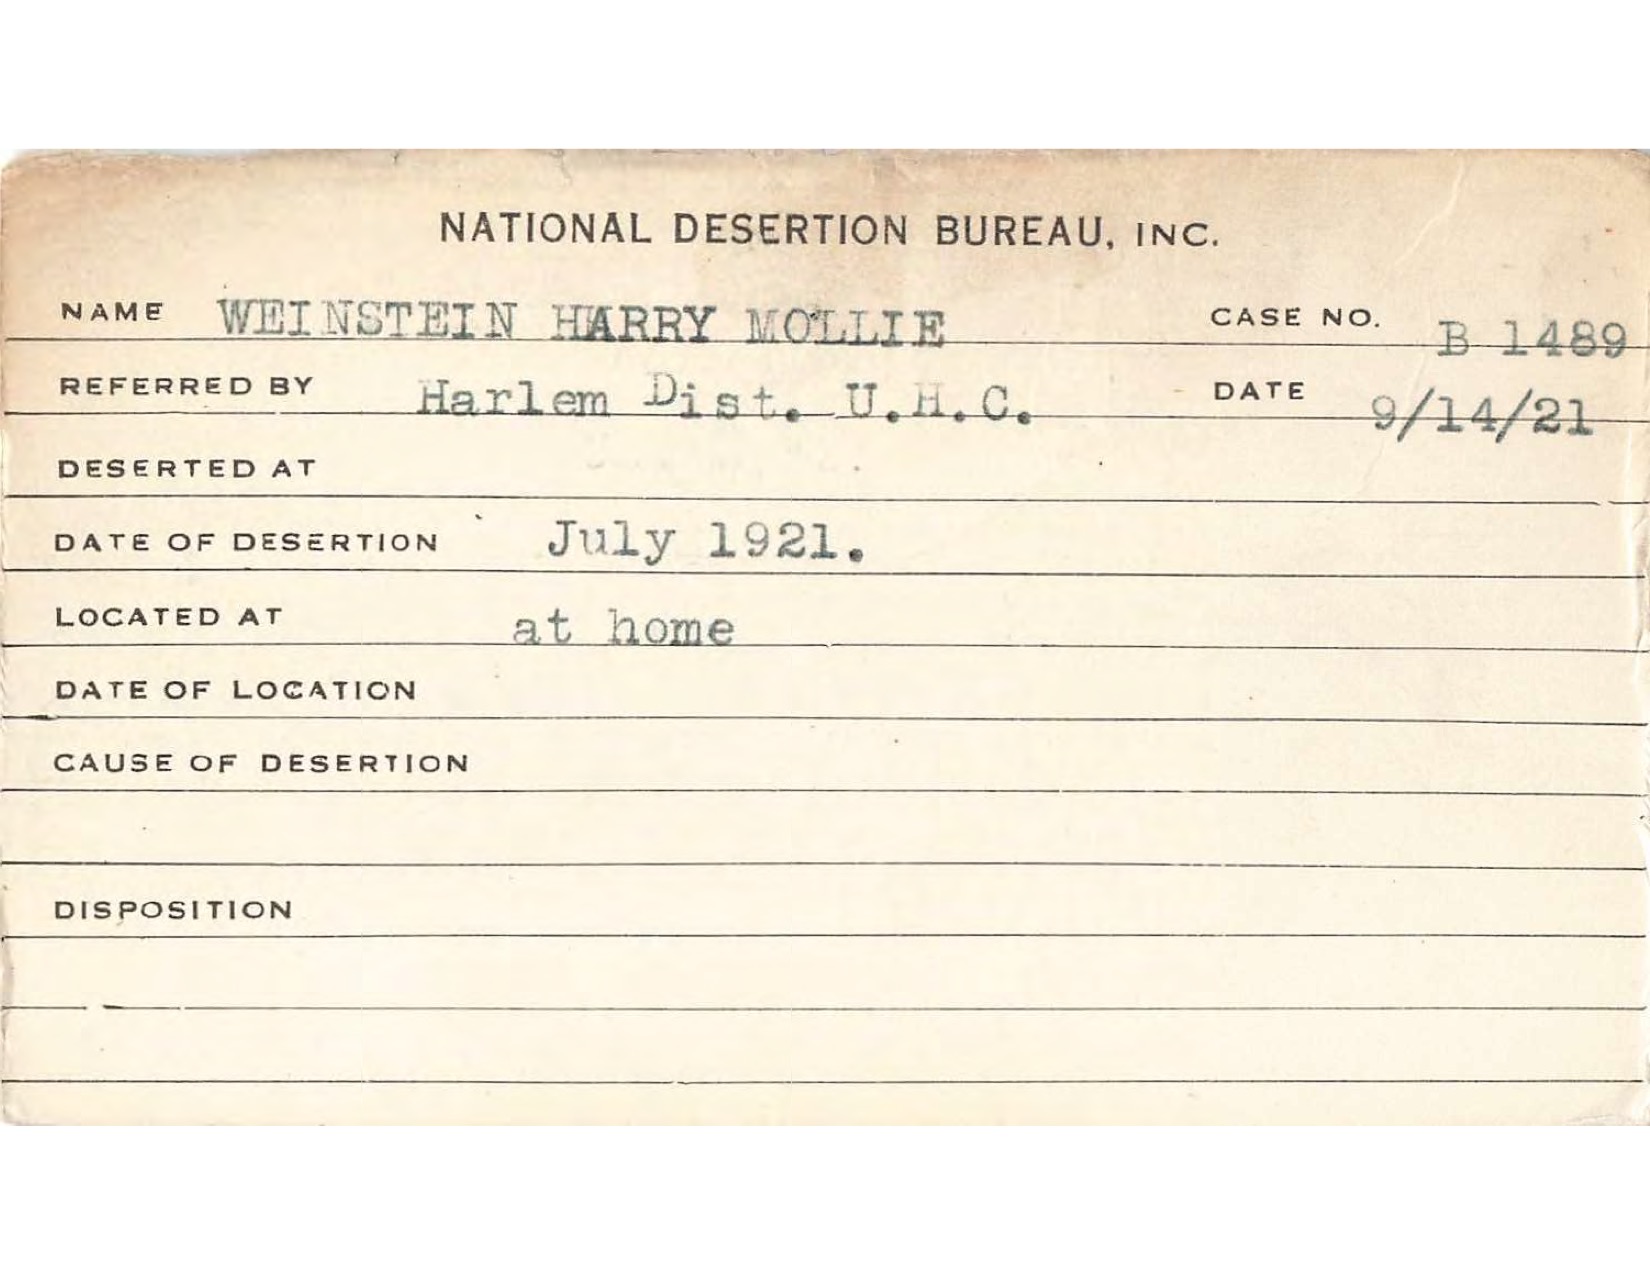 NATIONAL DESERTION BUREAU, INC.
NAME WEINSTEIN HARRY MOLLIE CASE NO. B 1489
REFERRED BY Harlem Dist. U.H.C. DATE 9/14/21
DESERTED AT
DATE OF DESERTION July 1921.
LOCATED AT at home
DATE OF LOCATION
CAUSE OF DESERTION
DISPOSITION